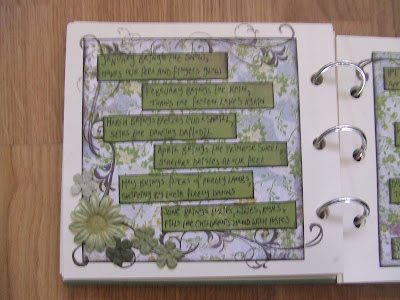 JANUARY BRINGS THE SNOW,
MAKES OUR FEET AND FINGERS GLOW
FEBRUARY BRINGS THE RAIN,
THAWS THE FROZEN LAKES AGAIN
MARCH BRINGS BREEZES LOUD & SHRILL
STIRS THE DANCING DAFFODIL
APRIL BRINGS THE PRIMROSE SWEET
SCATTERS DAISIES AT OUR FEET
MAY BRINGS FLOCKS OF PRETTY LAMBS,
SKIPPING BY THEIR FLEECY DAMS
JUNE BRINGS TULIPS, LILIES, ROSES,
FILLS THE CHILDREN'S HANDS WITH POSIES